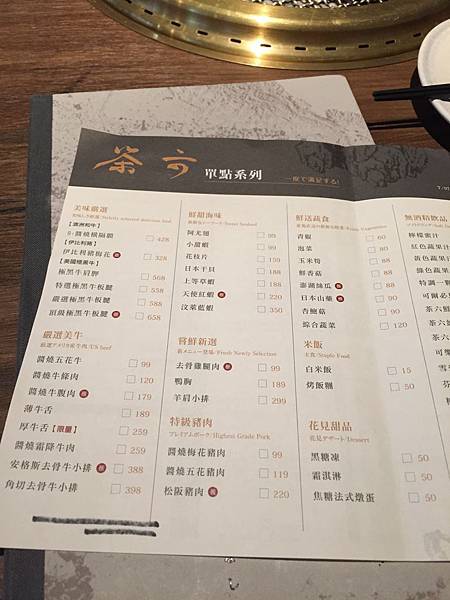 茶六 單點系列 一度で満足する!
美味嚴選
【澳洲和牛】
8盎醬燒橫隔膜 428
【伊比利豬】
伊比利豬梅花 328
【美國極黑牛】
極黑牛肩胛 568
特選極黑牛板腱 558
嚴選極黑牛板腱 588
頂級極黑牛板腱 658
嚴選美牛
厳選アメリカ産牛肉/US beef
醬燒五花牛 99
醬燒牛條肉 120
醬燒牛腹肉 179
薄牛舌 189
厚牛舌【限量】 259
醬燒霜降牛肉 259
安格斯去骨牛小排 388
角切去骨牛小排 398
鮮甜海味
阿尤翅 99
小甜蝦 99
花枝片 159
日本干貝 188
上等草蝦 188
天使紅蝦 220
汶萊藍蝦 350
嘗鮮新選
新メニュー登場/Fresh Newly Selection
去骨雞腿肉 99
鴨胸 189
羊肩小排 299
特級豬肉
プレミアムポーク/Highest Grade Pork
醬燒梅花豬肉 99
醬燒五花豬肉 119
松阪豬肉 220
鮮送蔬食
青椒 60
泡菜 60
玉米筍 80
鮮香菇 80
澎湖絲瓜 80
日本山藥 90
杏鮑菇 90
綜合蔬菜 120
米飯
主食/Staple Food
白米飯 15
烤飯糰 50
花見甜品
花見デザート/Dessert
黑糖凍 50
霜淇淋 50
焦糖法式燉蛋 50
無酒精飲品
檸檬蜜汁
紅色蔬果汁
黃色蔬果
綠色蔬果
特調一顆
可爾必
茶六鮮
茶六
可樂
雪